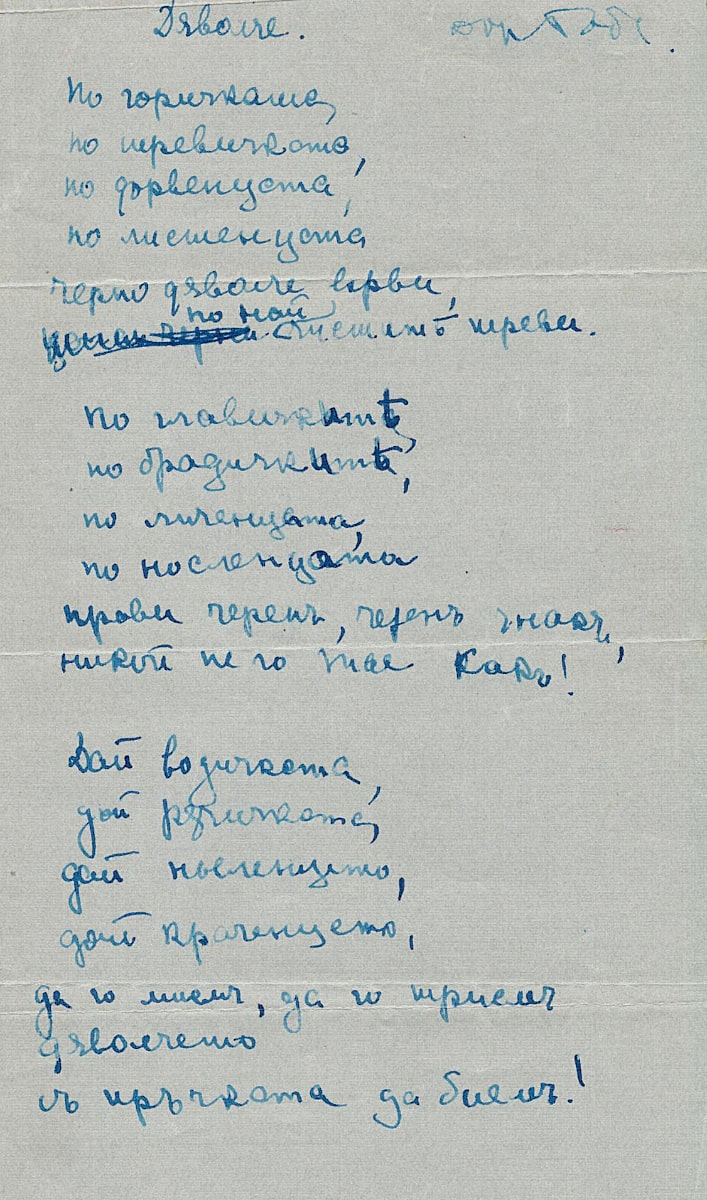 Дяволче.
По горичката,
по тревичката,
по дървенцята,
по листенцята
черно дяволче върви,
по най
честитѣ треви.
По главичкитѣ,
по брадичкитѣ,
по личенцата,
по носленцата
прави черенъ, черенъ знакъ,
никой не го знае какъ!
Дай водичката,
дай рѫчичката,
дай носленцето,
дай краченцето,
да го миемъ, да го триемъ
дяволчето
съ пръчката да биемъ!